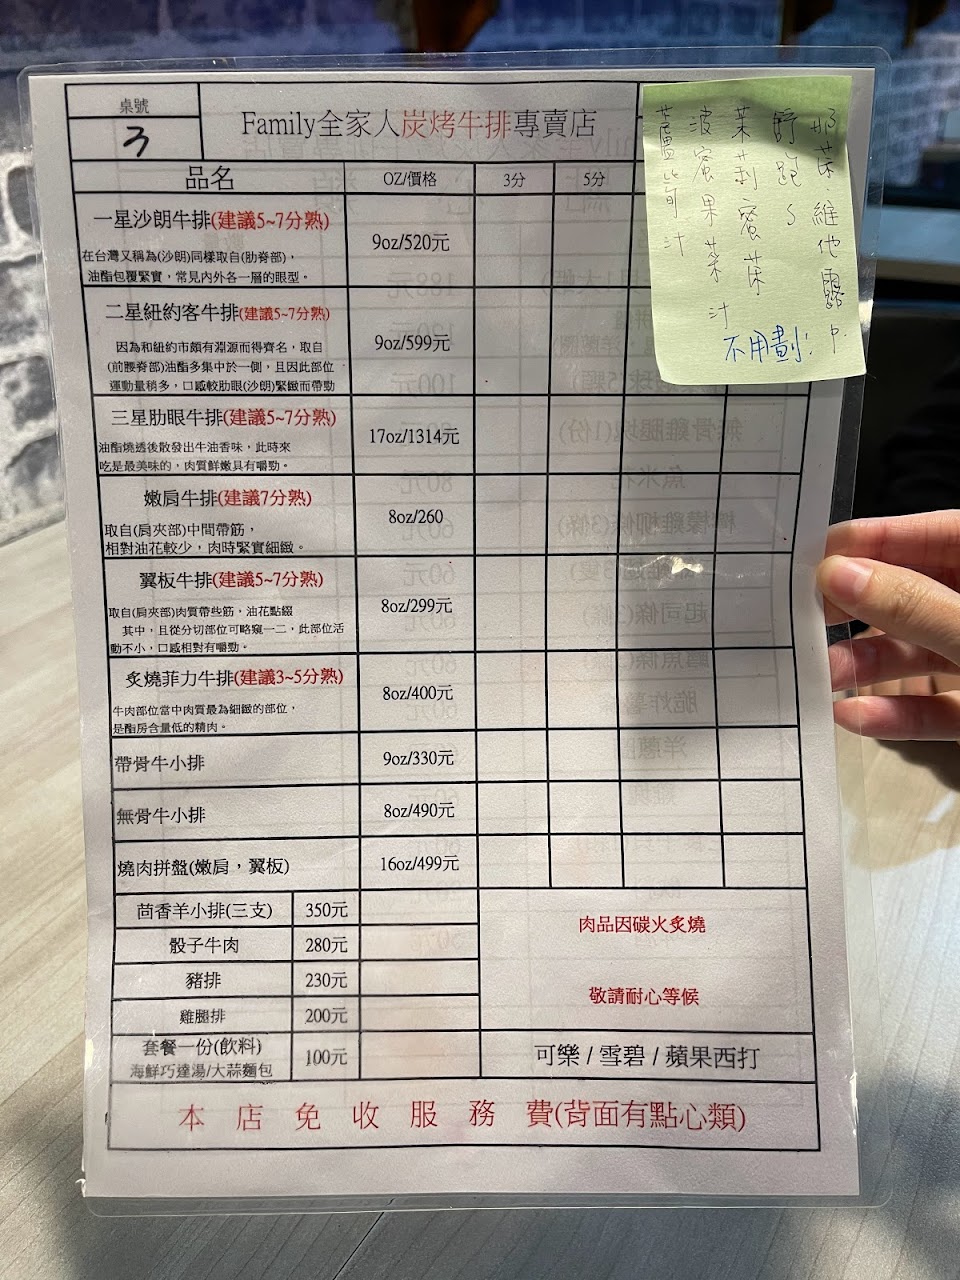 桌號
3
Family全家人炭烤牛排專賣店
品名 OZ/價格 3分 5分
一星沙朗牛排(建議5~7分熟) 9oz/520元
在台灣又稱為(沙朗)同樣取自(肋脊部)，
油酯包覆緊實，常見內外各一層的眼型。
二星紐約客牛排(建議5~7分熟) 9oz/599元
因為和紐約市頗有淵源而得齊名，取自
(前腰脊部)油酯多集中於一側，且因此部位
運動量稍多，口感較肋眼(沙朗)緊緻而帶勁
三星肋眼牛排(建議5~7分熟) 17oz/1314元
油酯燒透後散發出牛油香味，此時來
吃是最美味的，肉質鮮嫩具有嚼勁。
嫩肩牛排(建議7分熟) 8oz/260
取自(肩夾部)中間帶筋，
相對油花較少，肉時緊實細緻。
翼板牛排(建議5~7分熟) 8oz/299元
取自(肩夾部)肉質帶些筋，油花點綴
其中，且從分切部位可略窺一二，此部位活
動不小，口感相對有嚼勁。
炙燒菲力牛排(建議3~5分熟) 8oz/400元
牛肉部位當中肉質最為細緻的部位，
是酯房含量低的精肉。
帶骨牛小排 9oz/330元
無骨牛小排 8oz/490元
燒肉拼盤(嫩肩，翼板) 16oz/499元
茴香羊小排(三支) 350元
骰子牛肉 280元
豬排 230元
雞腿排 200元
套餐一份(飲料) 100元
海鮮巧達湯/大蒜麵包
肉品因碳火炙燒
敬請耐心等候
可樂 / 雪碧 / 蘋果西打
本店免收服務費(背面有點心類)
維他露P.
舒跑
茉莉蜜茶
波蜜果菜汁
蘆筍汁
不用劃!